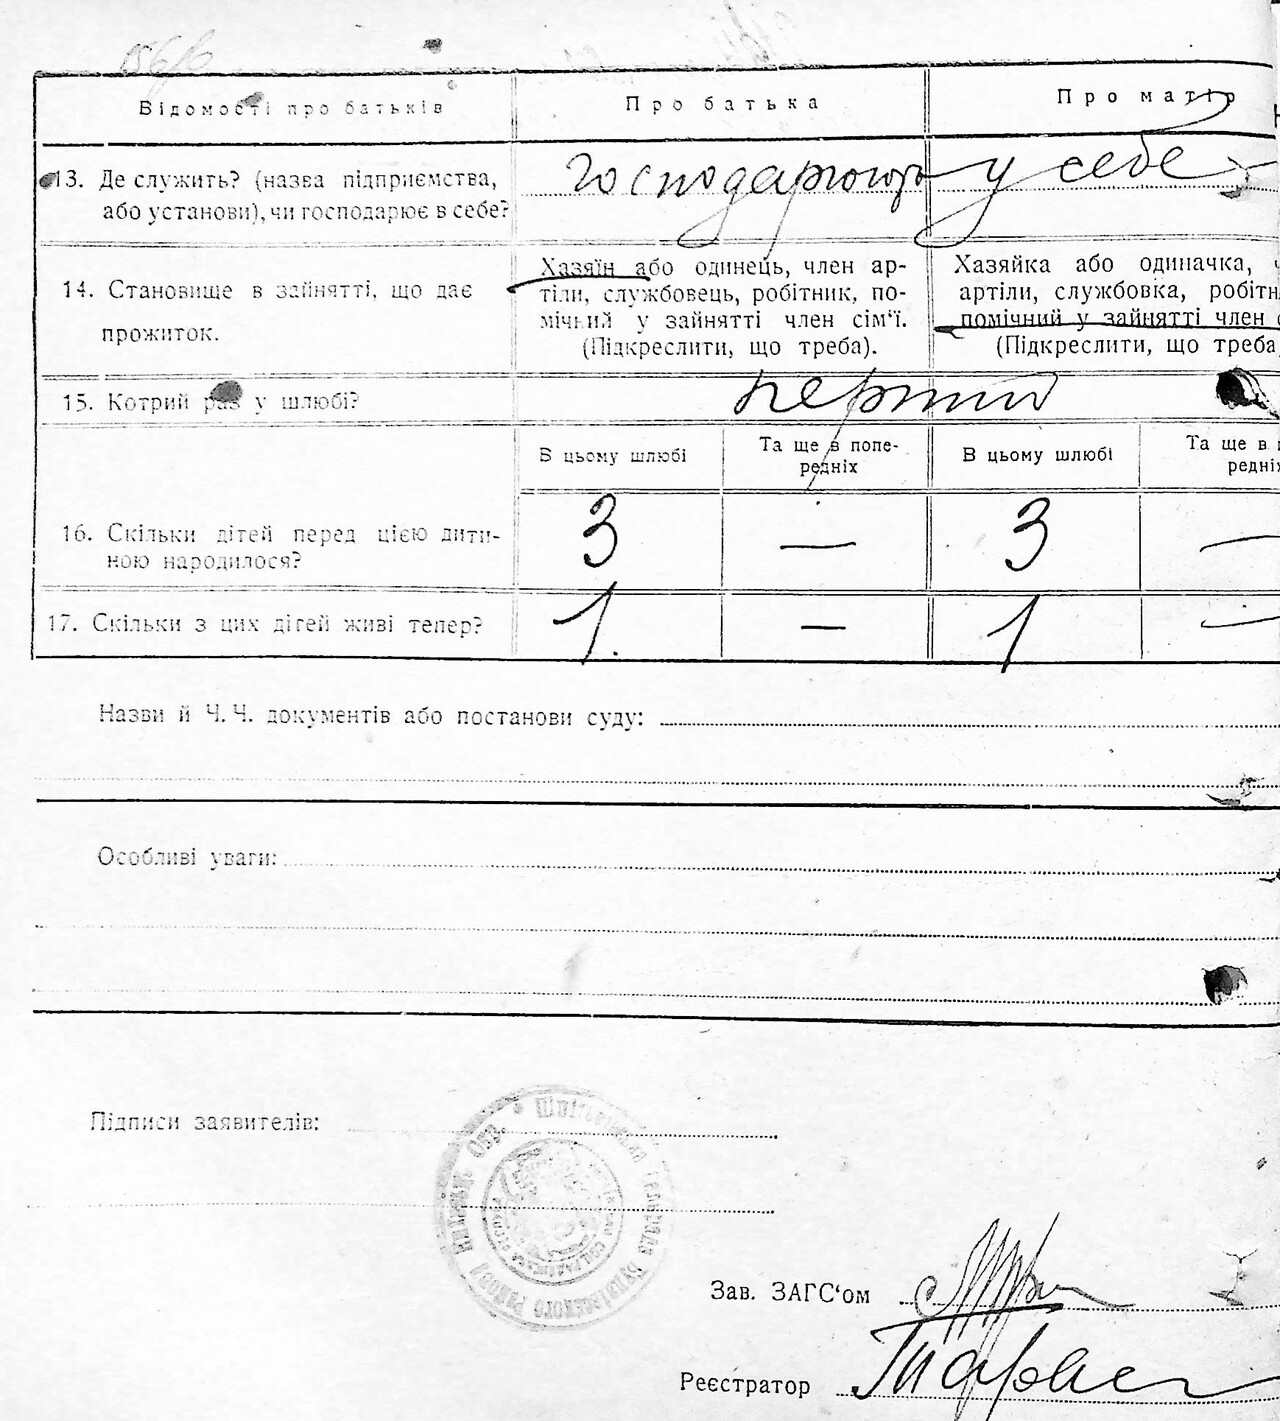 Відомості про батьків
Про батька
Про матір
13. Де служить? (назва підприємства,
або установи), чи господарює в себе?
господарюють у себе
14. Становище в зайнятті, що дає
прожиток.
Хазяїн або одинець, член ар-
тіли, службовець, робітник, по-
мічний у зайнятті член сім'ї.
(Підкреслити, що треба).
Хазяйка або одиначка, ч
артіли, службовка, робітн
помічний у зайнятті член с
(Підкреслити, що треба
15. Котрий раз у шлюбі?
перший
В цьому шлюбі
Та ще в попе-
редніх
В цьому шлюбі
Та ще в п
редніх
16. Скільки дітей перед цією дити-
ною народилося?
3 — 3 —
17. Скільки з цих дітей живі тепер?
1 — 1 —
Назви й Ч. Ч. документів або постанови суду:
Особливі уваги:
Підписи заявителів:
Зав. ЗАГС'ом
Реєстратор